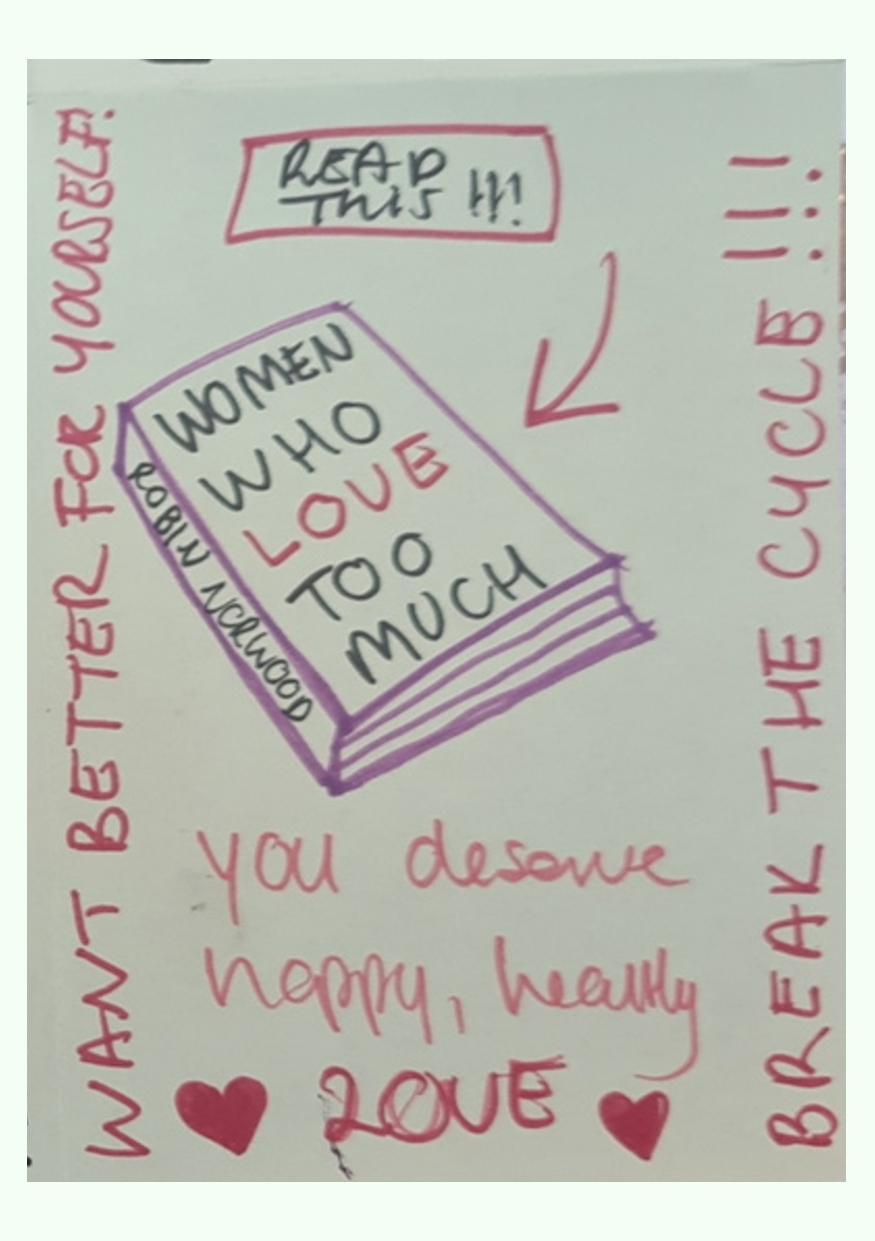 READ
THIS !!!
WOMEN
WHO
LOVE
TOO
MUCH
ROBIN NORWOOD
WANT BETTER FOR YOURSELF!
BREAK THE CYCLE !!!
you deserve
happy, healthy
LOVE